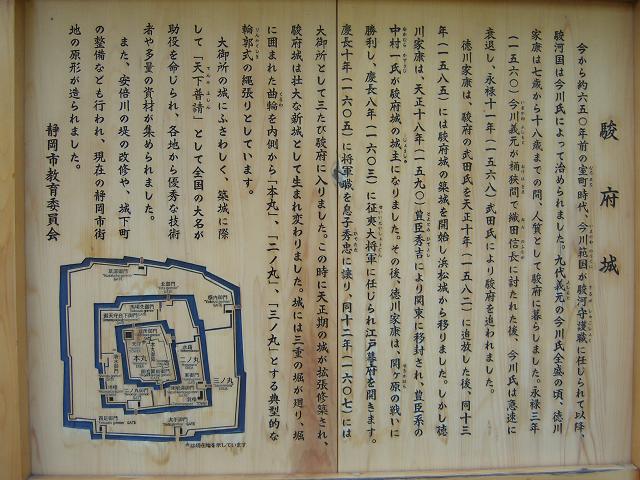 駿府城
今から約六五〇年前の室町時代、今川範国が駿河守護職に任じられて以降、
駿河国は今川氏によって治められました。九代義元の今川氏全盛の頃、徳川
家康は七歳から十八歳までの間、人質として駿府に暮らしました。永禄三年
(一五六〇)今川義元が桶狭間で織田信長に討たれた後、今川氏は急速に
衰退し、永禄十一年(一五六八)武田氏により駿府を追われました。
徳川家康は、駿府の武田氏を天正十年(一五八二)に追放した後、同十三
年(一五八五)には駿府城の築城を開始し浜松城から移りました。しかし徳
川家康は、天正十八年(一五九〇)豊臣秀吉により関東に移封され、豊臣系の
中村一氏が駿府城の城主になりました。その後、徳川家康は、関ヶ原の戦いに
勝利し、慶長八年(一六〇三)に征夷大将軍に任じられ江戸幕府を開きます。
慶長十年(一六〇五)に将軍職を息子秀忠に譲り、同十二年(一六〇七)には
大御所として三たび駿府に入りました。この時に天正期の城が拡張修築され、
駿府城は壮大な新城として生まれ変わりました。城には三重の堀が廻り、堀
に囲まれた曲輪を内側から「本丸」、「二ノ丸」、「三ノ丸」とする典型的な
輪郭式の縄張りとしています。
大御所の城にふさわしく、築城に際
して「天下普請」として全国の大名が
助役を命じられ、各地から優秀な技術
者や多量の資材が集められました。
また、安倍川の堤の改修や、城下町
の整備なども行われ、現在の静岡市街
地の原形が造られました。
静岡市教育委員会
草深御門
北御門
横内御門
本丸
二ノ丸
三ノ丸
四足御門
大手御門
は現在地を示しています